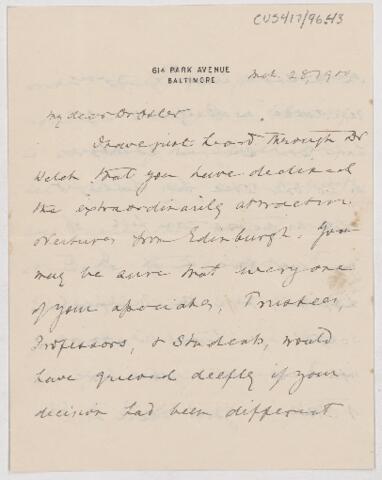 CUS417/96.43
614 PARK AVENUE
BALTIMORE
Mch. 28, 1900
My dear Dr Osler
I have just heard through Dr
Welch that you have declined
the extraordinarily attractive
overtures from Edinburgh. You
may be sure that every one
of your associates, Trustees,
Professors, & Students, would
have grieved deeply if your
decision had been different